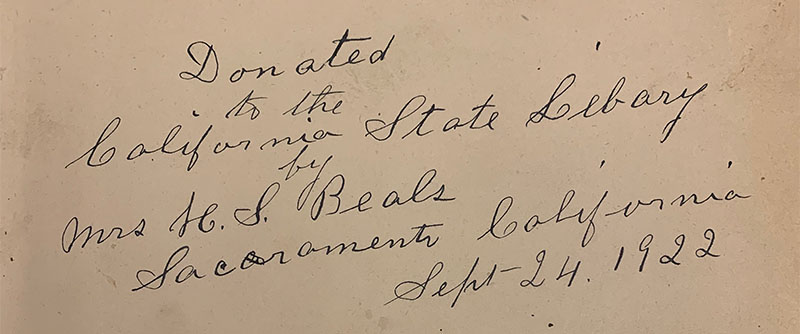 Donated
to the
California State Libary
by
Mrs H. S. Beals
Sacaramento California
Sept 24. 1922